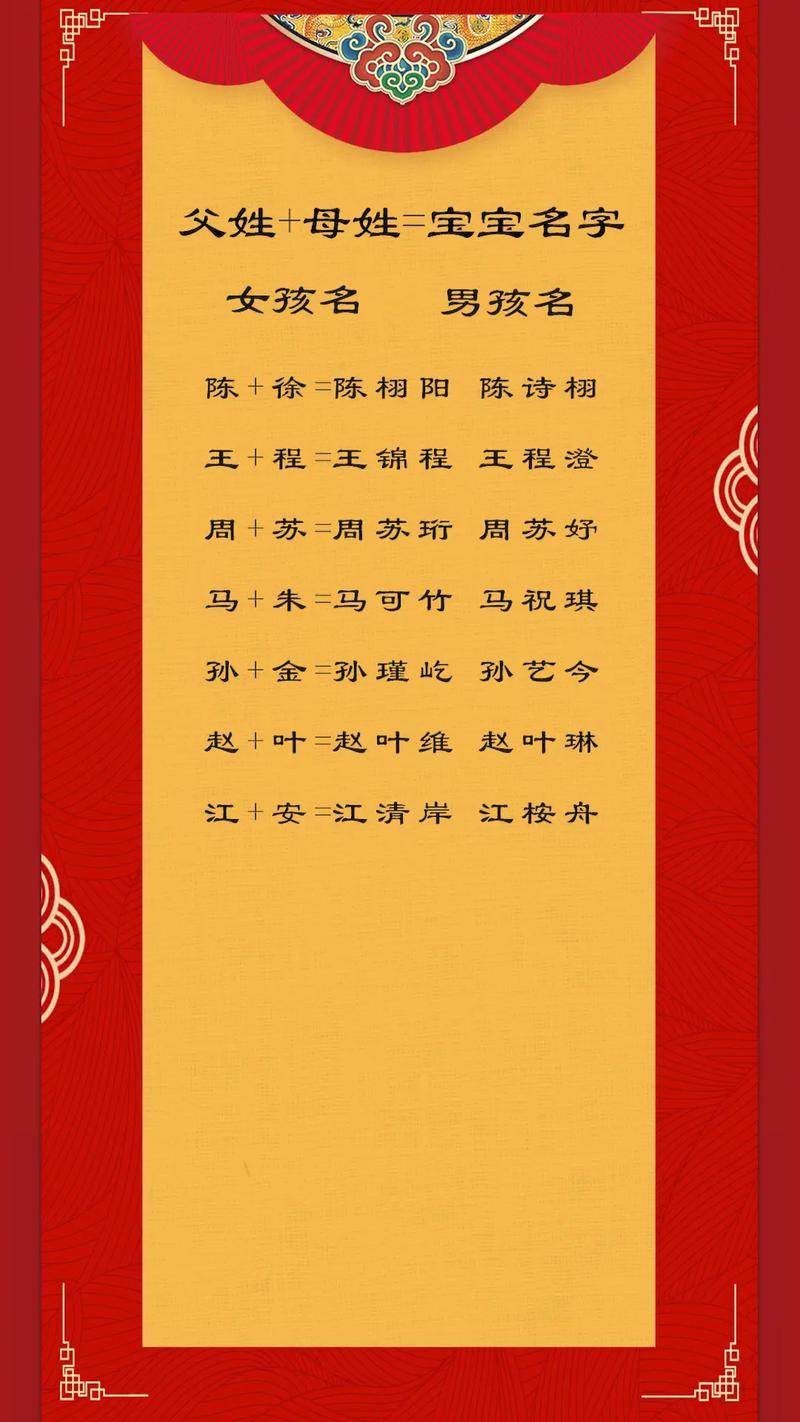 父姓+母姓=宝宝名字
女孩名 男孩名
陈+徐=陈栩阳 陈诗栩
王+程=王锦程 王程澄
周+苏=周苏珩 周苏妤
马+朱=马可竹 马祝琪
孙+金=孙瑾屹 孙艺今
赵+叶=赵叶维 赵叶琳
江+安=江清岸 江桉舟